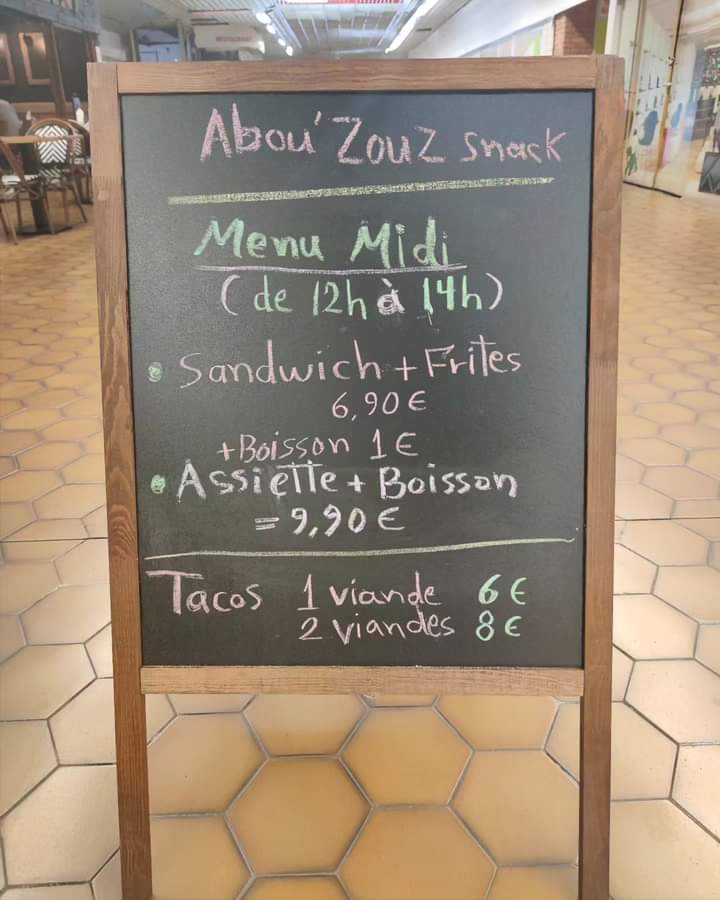 Abou' Zouz snack
Menu Midi
(de 12h à 14h)
• Sandwich + Frites
6,90 €
+ Boisson 1 €
• Assiette + Boisson
= 9,90 €
Tacos 1 viande 6 €
2 viandes 8 €